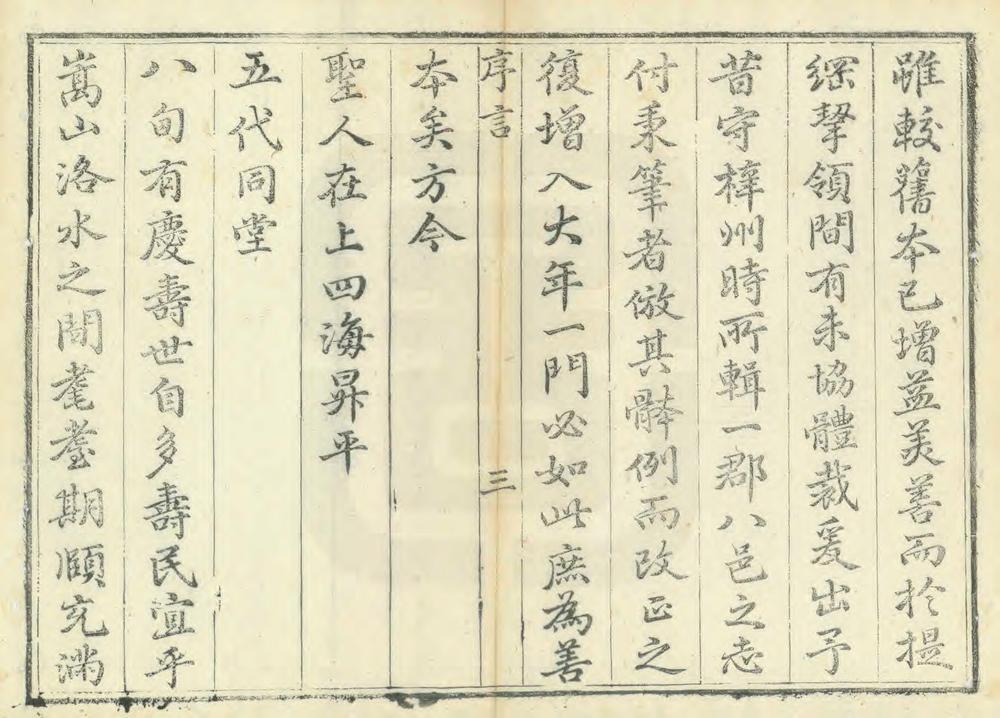 雖較舊夲已增益美善而扵提
綱挈領間有未協體裁爰出予
昔守梓州時所輯一郡八邑之志
付秉筆者倣其骵例而改正之
復增入大年一門必如此庶為善
序言 三
夲矣方今
聖人在上四海昇平
五代同堂
八旬有慶壽世自多壽民宜乎
嵩山洛水之間耄耋期頤充滿